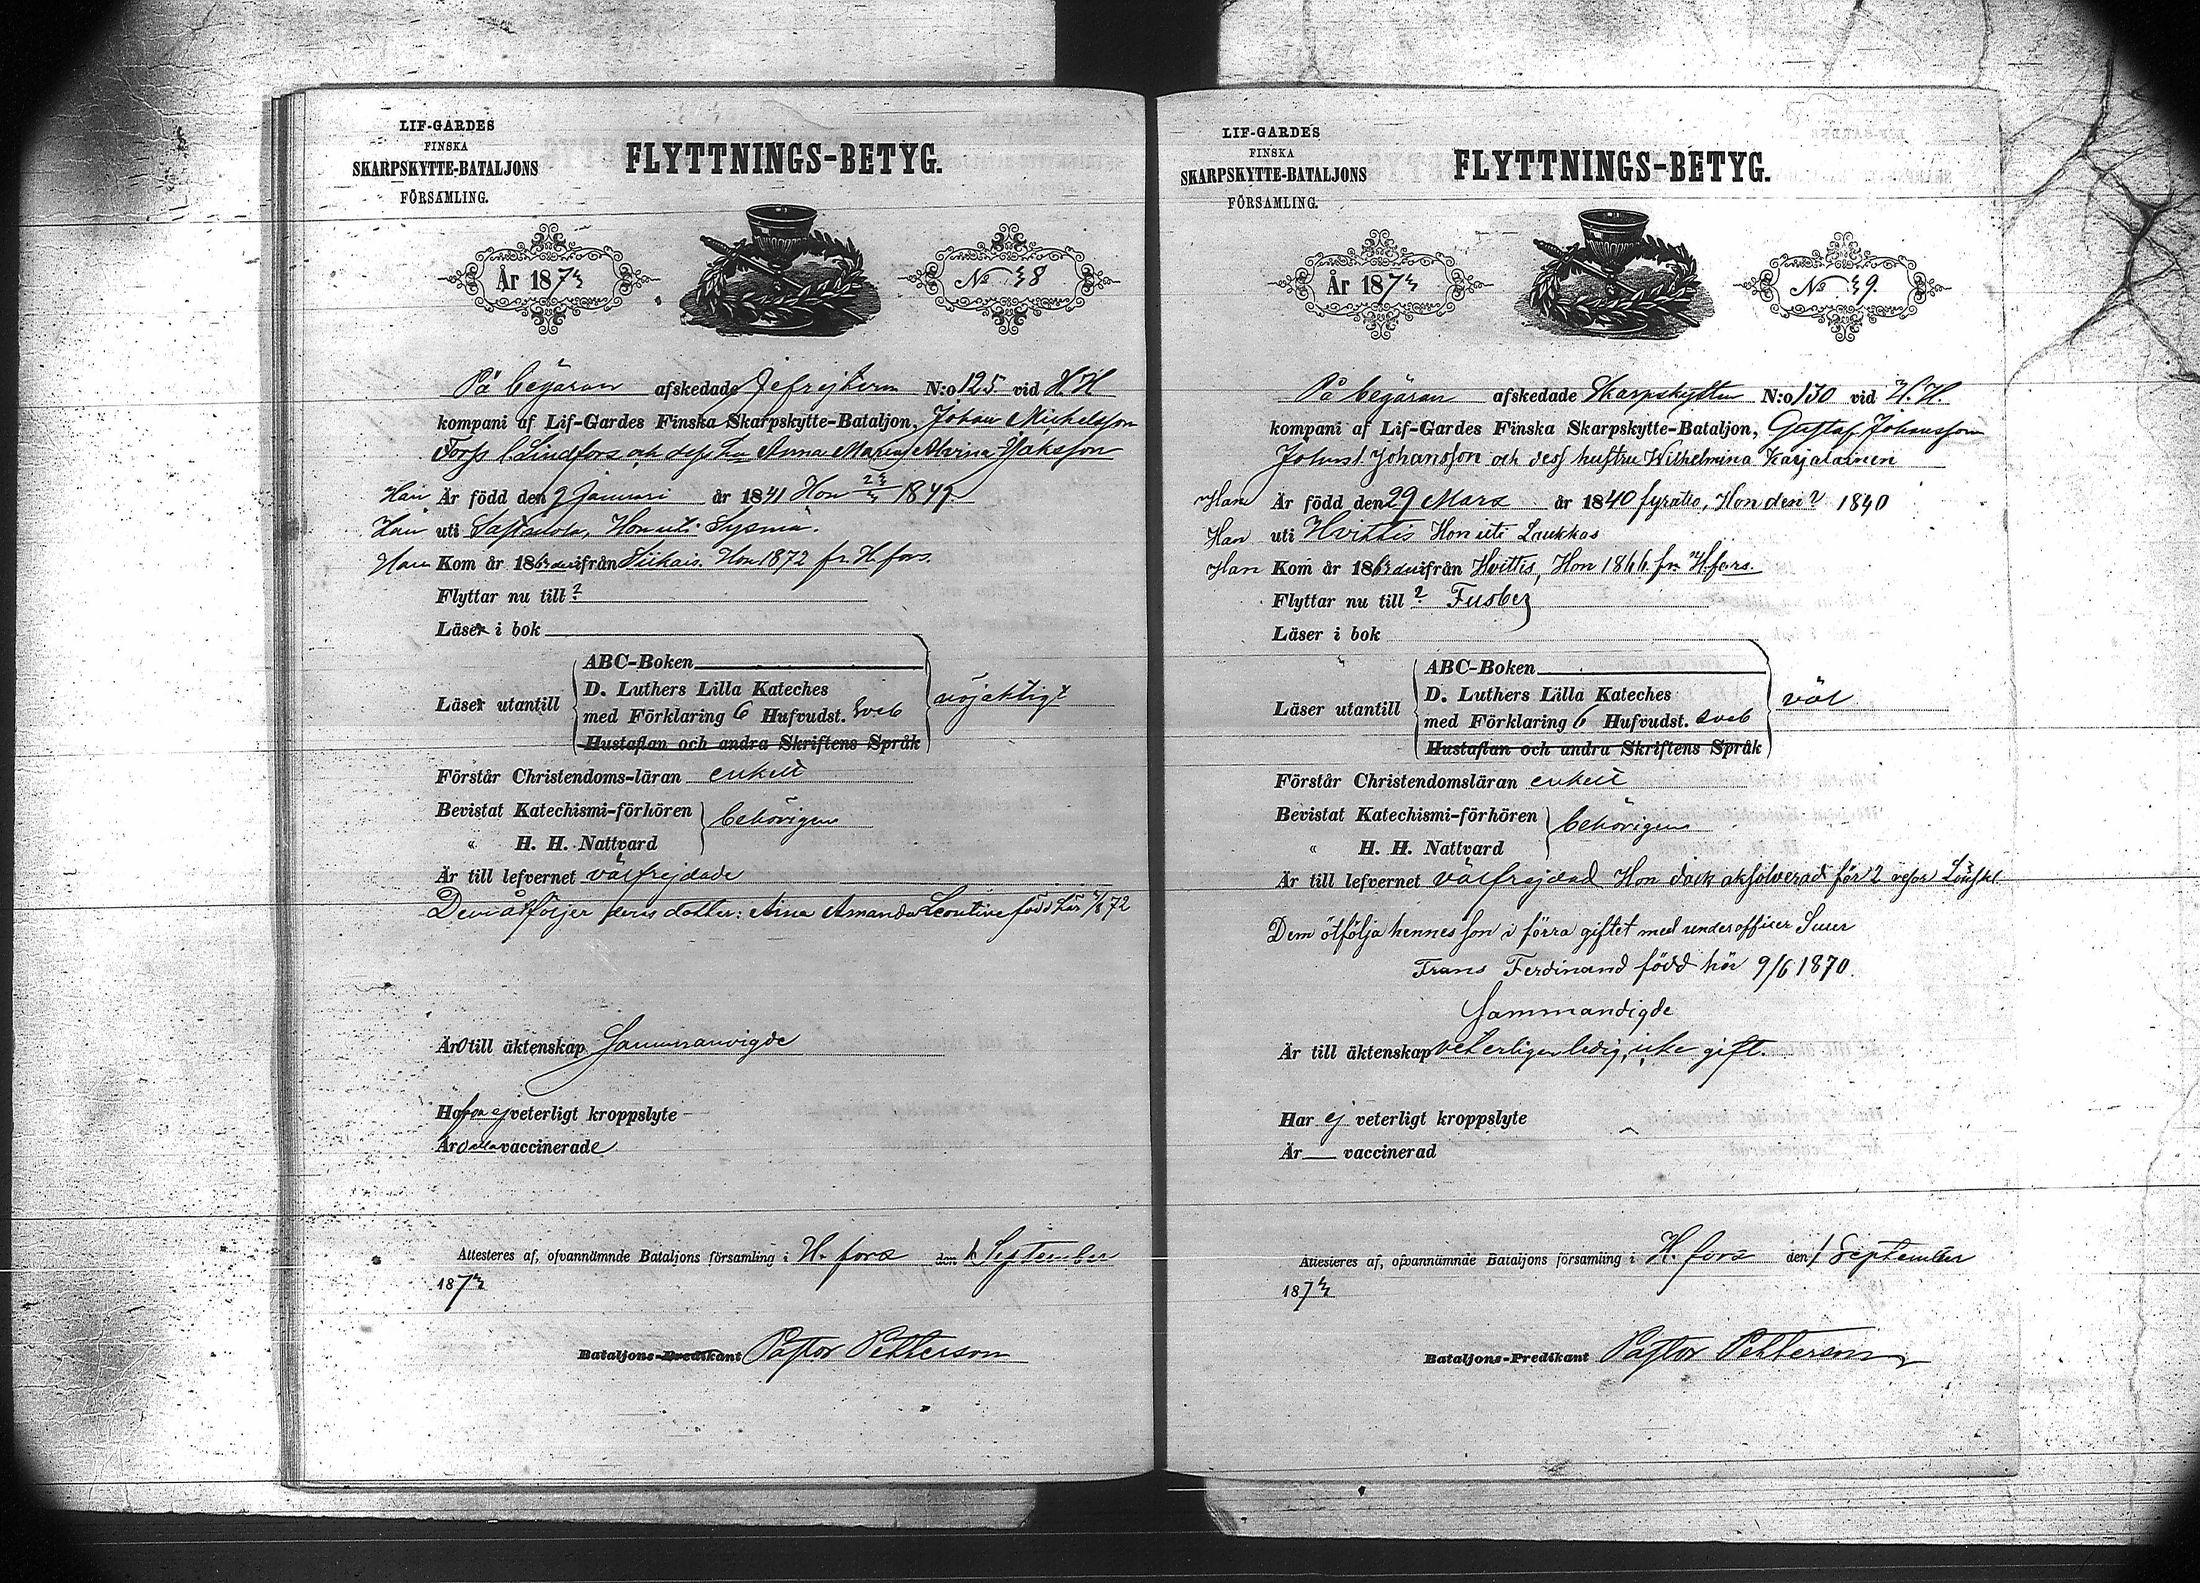 LIF-GARDES
FINSKA
SKARPSKYTTE-BATALJONS
FÖRSAMLING.
FLYTTNINGS-BETYG.
År 1873
No 38
På begäran afskedade Gefrejtern N:o 125 vid H. H
kompani af Lif-Gardes Finska Skarpskytte-Bataljon, Johan Michelsson
Forss l. Lindfors och dess hu Anna Maria Alvina Isaksson
Han Är född den 9 Januari år 1841 Hon 1849
Han uti Hon uti Sysmä.
Han Kom år 1863 från Siikais. Hon 1872 fr. H.fors.
Flyttar nu till ?
Läser i bok
ABC-Boken
Läser utantill D. Luthers Lilla Kateches
med Förklaring 6 Hufvudst. nöjaktigt
Hustaflan och andra Skriftens Språk
Förstår Christendoms-läran enkelt
Bevistat Katechismi-förhören behörigen
" H. H. Nattvard
Är till lefvernet välfrejdade
Dem åtföljer deras dotter: Aina Amanda Leontine född här 72
Äro till äktenskap Sammanvigde
Hafva ej veterligt kroppslyte
Äro alla vaccinerade
Attesteres af, ofvannämnde Bataljons församling i H. fors den 1 September
1873
Bataljons-Predikant Pastor Pettersson
LIF-GARDES
FINSKA
SKARPSKYTTE-BATALJONS
FÖRSAMLING.
FLYTTNINGS-BETYG.
År 1873
No 39.
På begäran afskedade Skarpskytten N:o 130 vid H. H.
kompani af Lif-Gardes Finska Skarpskytte-Bataljon, Gustaf Johansson
Johansson och dess hustru Wilhelmina Karjalainen
Han Är född den 29 Mars år 1840 fyratio, Hon den ? 1840
Han uti Hvittis Hon uti Laukkas
Han Kom år 1863 från Hvittis, Hon 1866 fr. H.fors.
Flyttar nu till ? Fusby
Läser i bok
ABC-Boken
Läser utantill D. Luthers Lilla Kateches
med Förklaring 6 Hufvudst. väl
Hustaflan och andra Skriftens Språk
Förstår Christendomsläran enkelt
Bevistat Katechismi-förhören behörigen
" H. H. Nattvard
Är till lefvernet välfrejdad Hon dock absolverad för 2 resor Löuskl.
Dem åtfölja hennes son i förra giftet med underofficer Suur
Frans Ferdinand född här 9/6 1870.
Sammanvigde
Är till äktenskap veterligen ledig, icke gift.
Har ej veterligt kroppslyte
Är — vaccinerad
Attesteres af, ofvannämnde Bataljons församling i H. fors den 1 September
1873
Bataljons-Predikant Pastor Pettersson